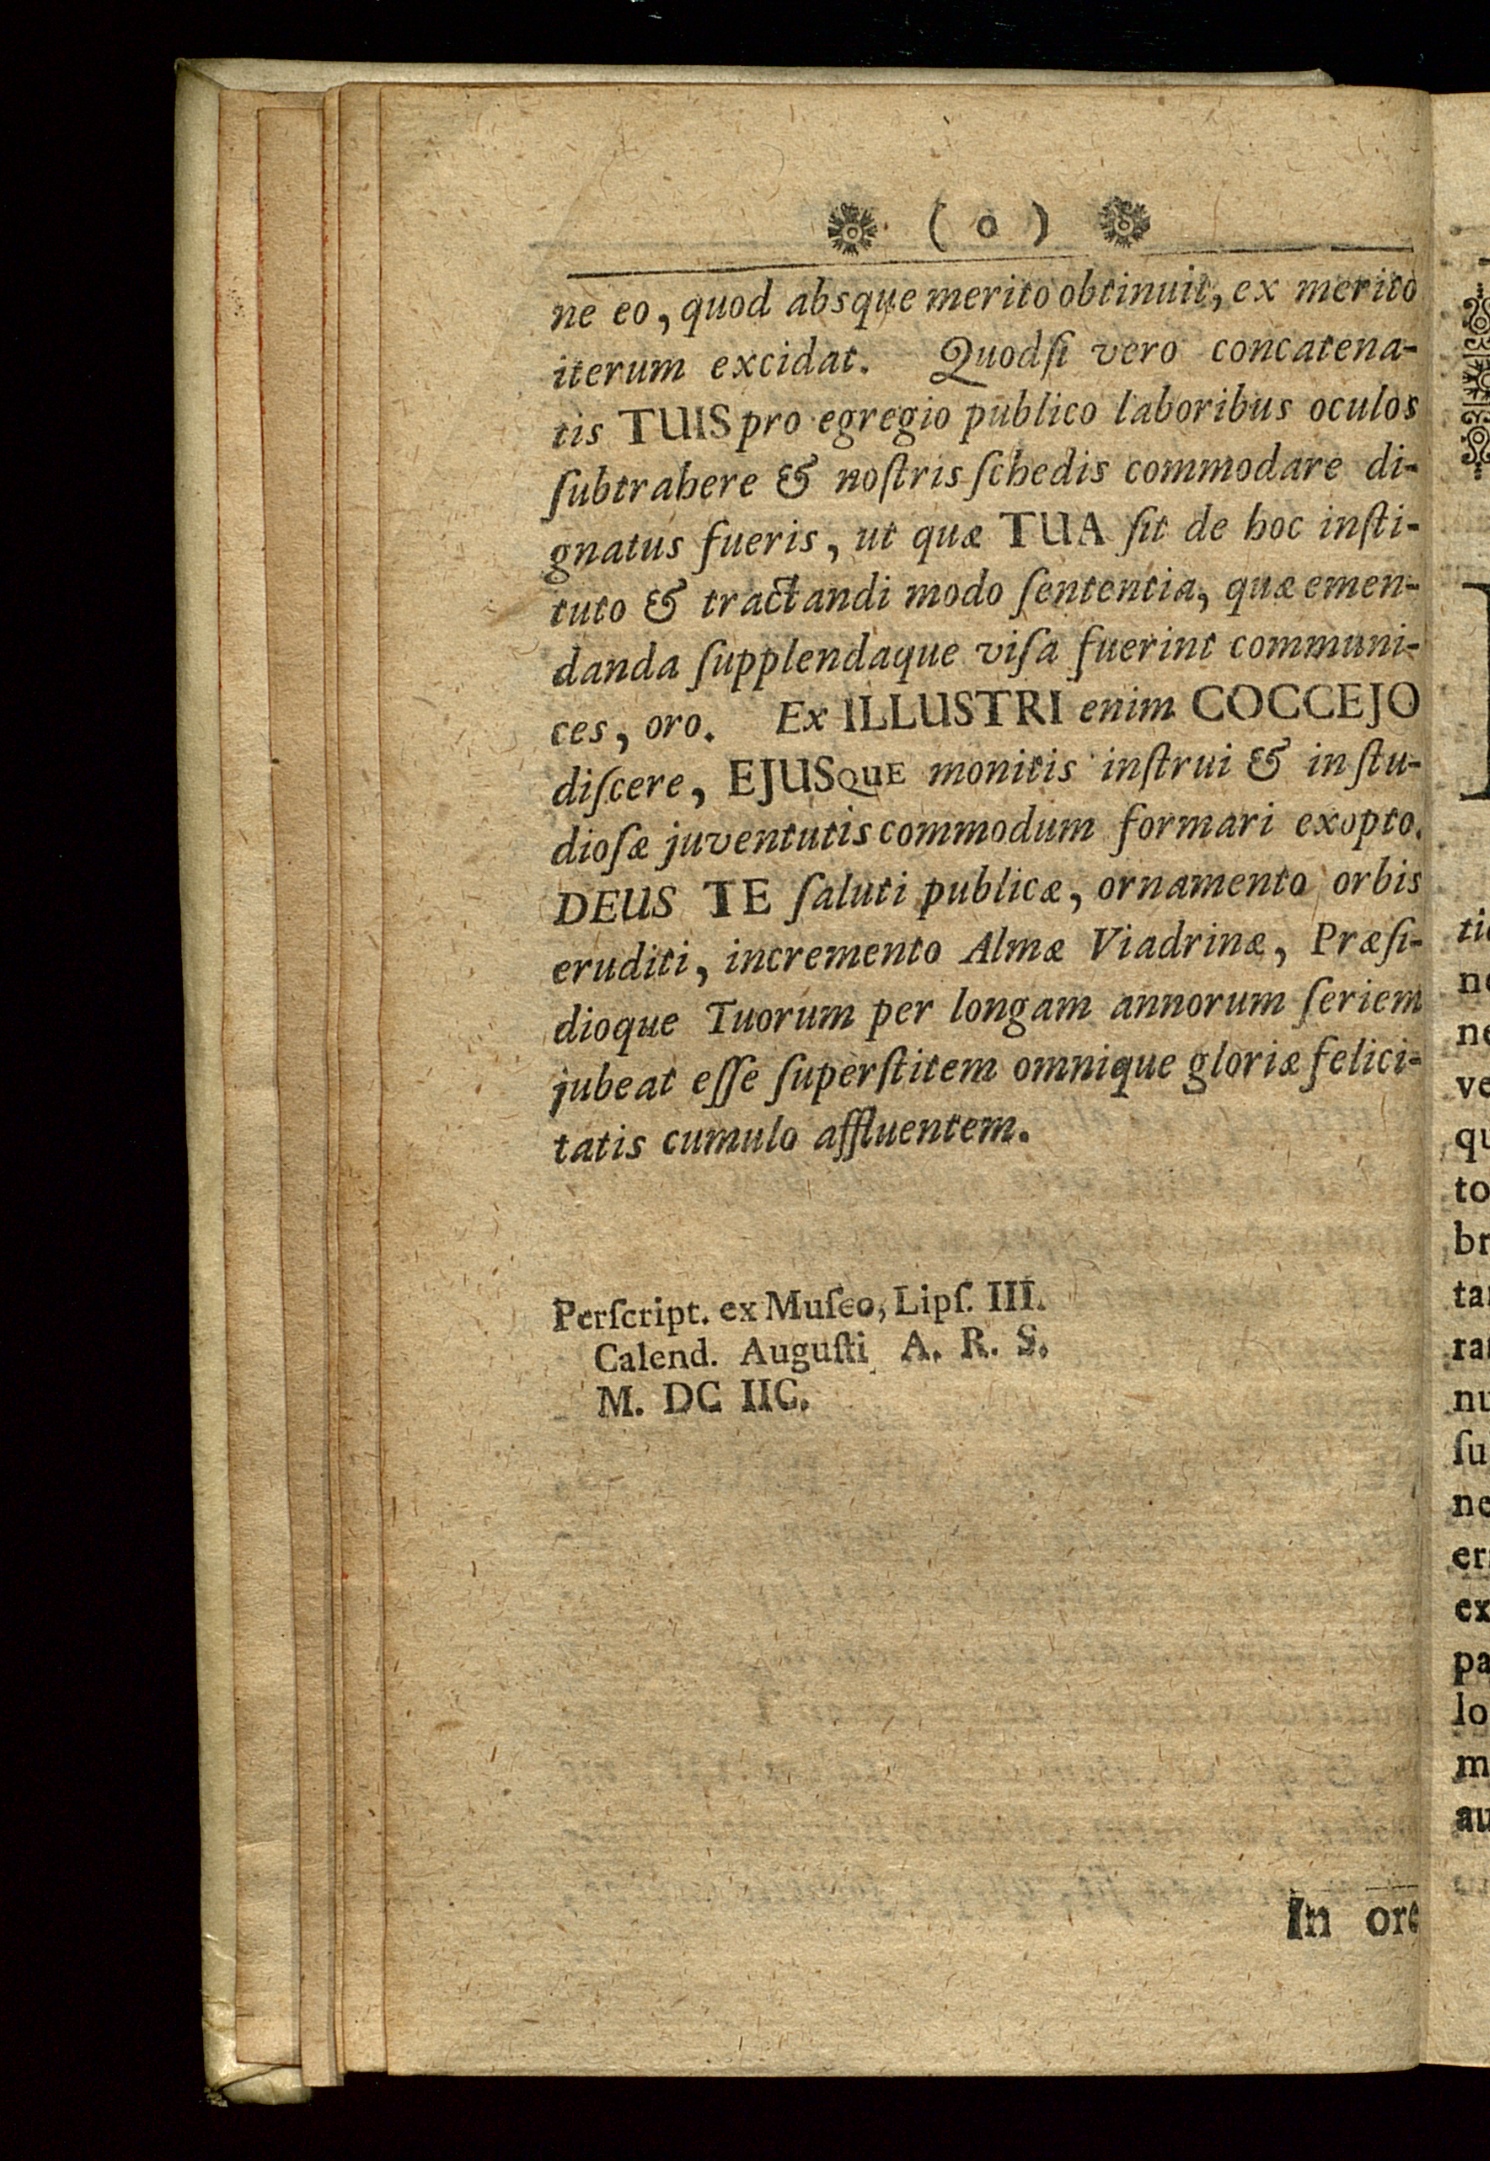 ( o )
ne eo, quod absque merito obtinuit, ex merito
iterum excidat. Quodſi vero concatena-
tis TUIS pro egregio publico laboribus oculos
ſubtrahere & noſtris ſchedis commodare di-
gnatus fueris, ut quæ TUA ſit de hoc inſti-
tuto & tractandi modo ſententia, quæ emen-
danda ſupplendaque viſa fuerint communi-
ces, oro. Ex ILLUSTRI enim COCCEJO
diſcere, EJUSQUE monitis inſtrui & in ſtu-
dioſæ juventutis commodum formari exopto.
DEUS TE ſaluti publicæ, ornamento orbis
eruditi, incremento Almæ Viadrinæ, Præſi-
dioque Tuorum per longam annorum ſeriem
jubeat eſſe ſuperſtitem omnique gloriæ felici-
tatis cumulo affluentem.
Perſcript. ex Muſeo, Lipſ. III.
Calend. Auguſti A. R. S.
M. DC IIC.
In ore